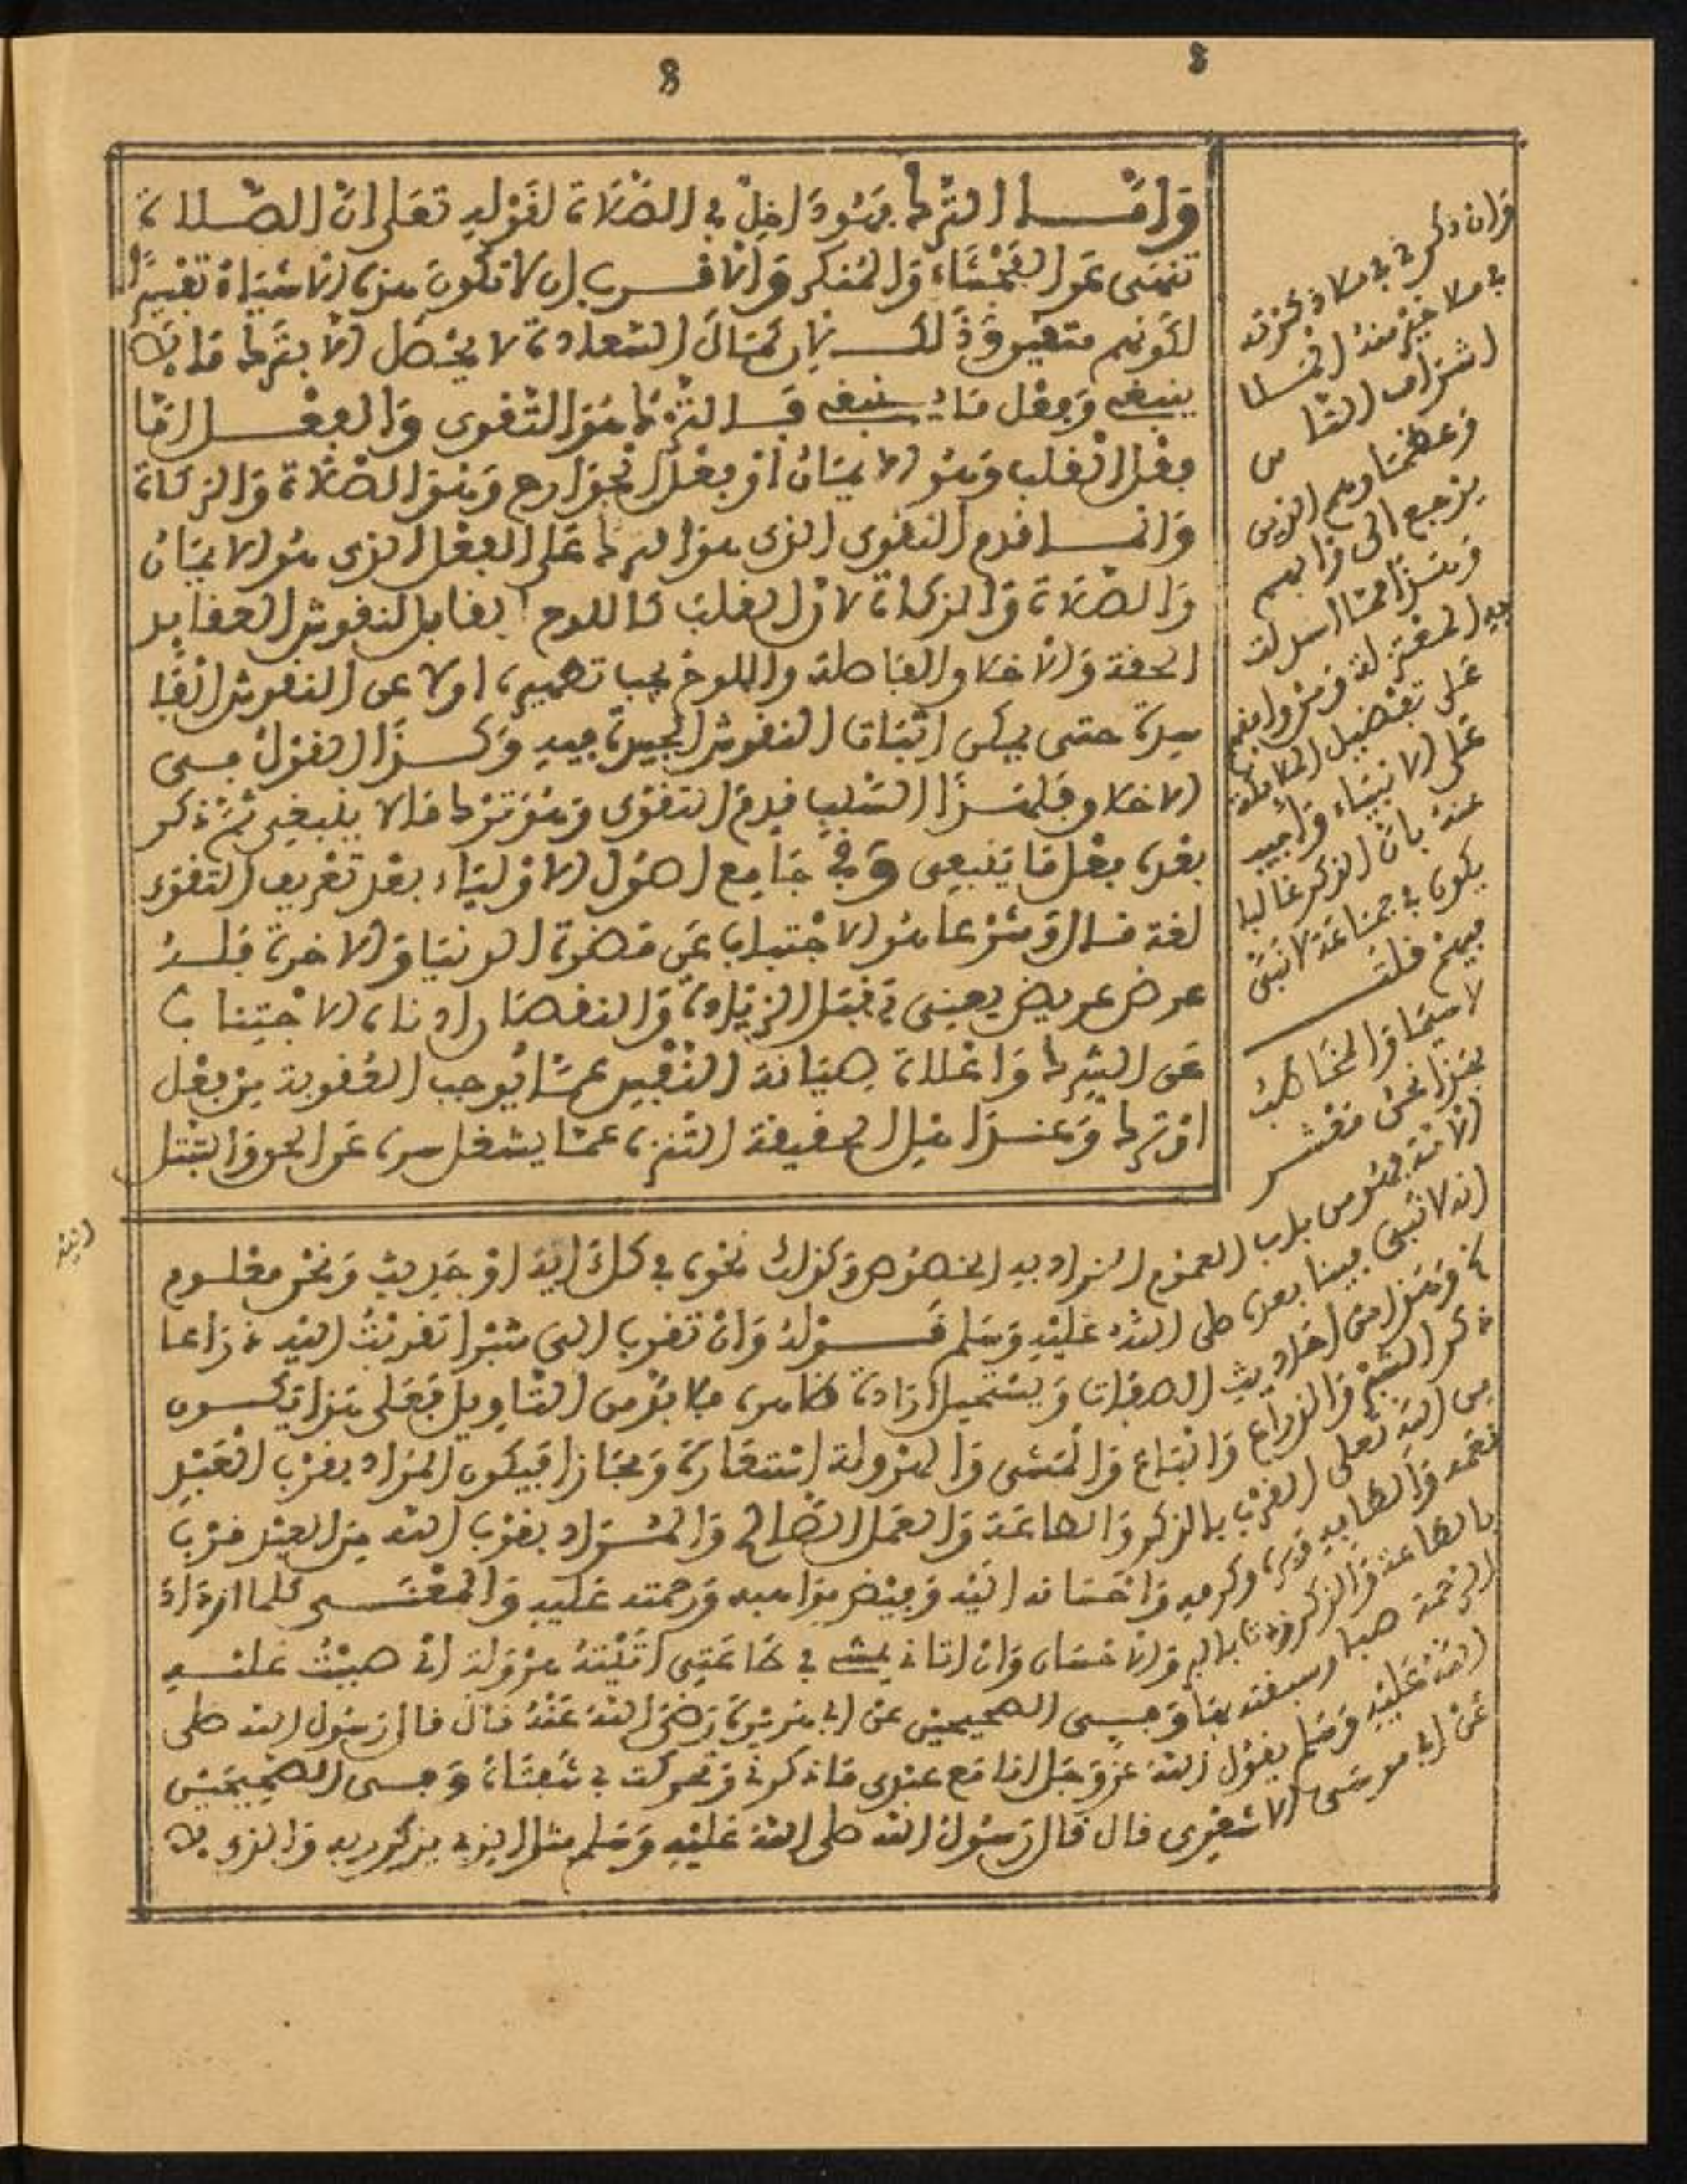 8 8
وَأمَّا التَّرك فهُو دَاخِلٌ في الصَّلاة لقَوْلِهِ تعَلى انَّ الصَّلاة
تنهَى عَن الفَحْشَاء وَالمُنكر وَالأقرب ان لا تكون هذه الاشياء تفسيرًا
لكونهم متقين وذلك بان كمَال السَّعادة لا يحْصل الا بترك مَا لا
ينبغى وَفعْل مَا ينبغى فالتّرك هُو التّقوى وَالفعْل امّا
فعْل القلب وَهُو الايمَان أوْ فعْل الجوَارح وَهْوَ الصَّلاة وَالزكاة
وَانما قدم التقوى الذى هو الترك عَلى الفعْل الذى هُو الايمَان
وَالصَّلاة وَالزكاة لان القلب كاللوح القابل لنقوش العقايد
الحقة وَالاخلاق الفاضلة واللوح يجب تطهيره اولا عن النقوش الفا
سدة حتى يمكن اثبَات النقوش الجيدة فيه وَكذَا القوْل فى
الاخلاق فلهذَا السَّبب قدم التقوَى وَهُوَ تَرْك مَا لا ينبغى ثمّ ذكر
بعْده فعْل مَا يَنبغى وَفى جَامِع اصُول الاوْليَاء بعْد تعْريف التقوَى
لغة قال وَشرْعا هُو الاجْتناب عَن مَضرة الدنيَا وَالاخرة فلهُ
عرض عريض يعنى يقبَل الزيَادة وَالنقصَان ادناه الاجْتِناب
عَن الشِّرك وَاعْلاه صِيَانة النَّفس عمَّا يُوجب العُقوبة مِن فعْل
اوْ ترك وَعند اهل الحقيقة التّنزه عمّا يشغل سره عَن الحق وَالتبَتل
اليْه
فَان ذكرنى فى ملاء ذكرته
فى ملاء خيْر منهُ المَلأ
اشْرَاف النَّاس
وَعظمَاوهم الذين
يرْجع الى رأيهم
وَهَذَا ممَّا استدلت
به المعْتزلة وَمن وافقهم
عَلى تفضيل الملائكة
عَلى الانبيَاء وَاجيب
عنهُ بان الذكر غَالبا
يكون فى جمَاعَة لا نبىّ
فيهم قلت
لا سيَّمَا وَالمخَاطب
بهَذا نحْن مَعْشر
الامّة فهُو من باب العمُوم المراد به الخصُوص وَكذلك نحْوه فى كل اية اوْ حَديث وَنحْن معْلوم
انه لا نَبى فينا بعده صلى اللهُ عَليْهِ وَسَلم قَوْلهُ وَان تقرب الىّ شبْرا تقرّبْتُ اليْه ذرَاعا
وَهَذا من احَاديث الصفات وَيسْتحيل ارَادة ظاهره فلا بُدّ من التّاوِيل فَعَلى هَذا يَكون
ذكر الشّبْر وَالذراع وَالبَاع وَالمَشى وَالهرْولة اسْتعَارة وَمجَازا فيكون المرَاد بقرْب العَبْد
من اللهِ تعلى القرْب بالذكر وَالطاعَة وَالعَمل الصَّالح وَالمُرَاد بقرْب الله مِن العبْد قرْب
نعَمه وَالطافه وبره وكرمه وَاحْسَانه اليْه وَفيْض موَاهبه وَرحمته عَليه وَالمعْنى كلما ازْدَادَ
بالطاعة وَالذكر زدته بالبر وَالاحْسَان وَان اتانى يمشى فى طاعَتِى أَتَيْتهُ هرْوَلة اىْ صببْتُ عليْه
الرحْمة صبا وسبقته بهَا وَفى الصّحيحين عن ابى هُريرَة رَضىَ اللهُ عَنْهُ قال قال رَسُول الله صلى
اللهُ عَليْهِ وَسَلم يقول الله عَزّ وَجَل انا مَع عبْدى مَا ذكرنى وَتحركت بى شَفتَاهُ وَفى الصّحِيحَيْن
عَنْ ابى موسَى الاشعَرى قال قَال رَسُول الله صلى اللهُ عَليْهِ وَسَلم مثل الذى يذكر ربه وَالذى لا